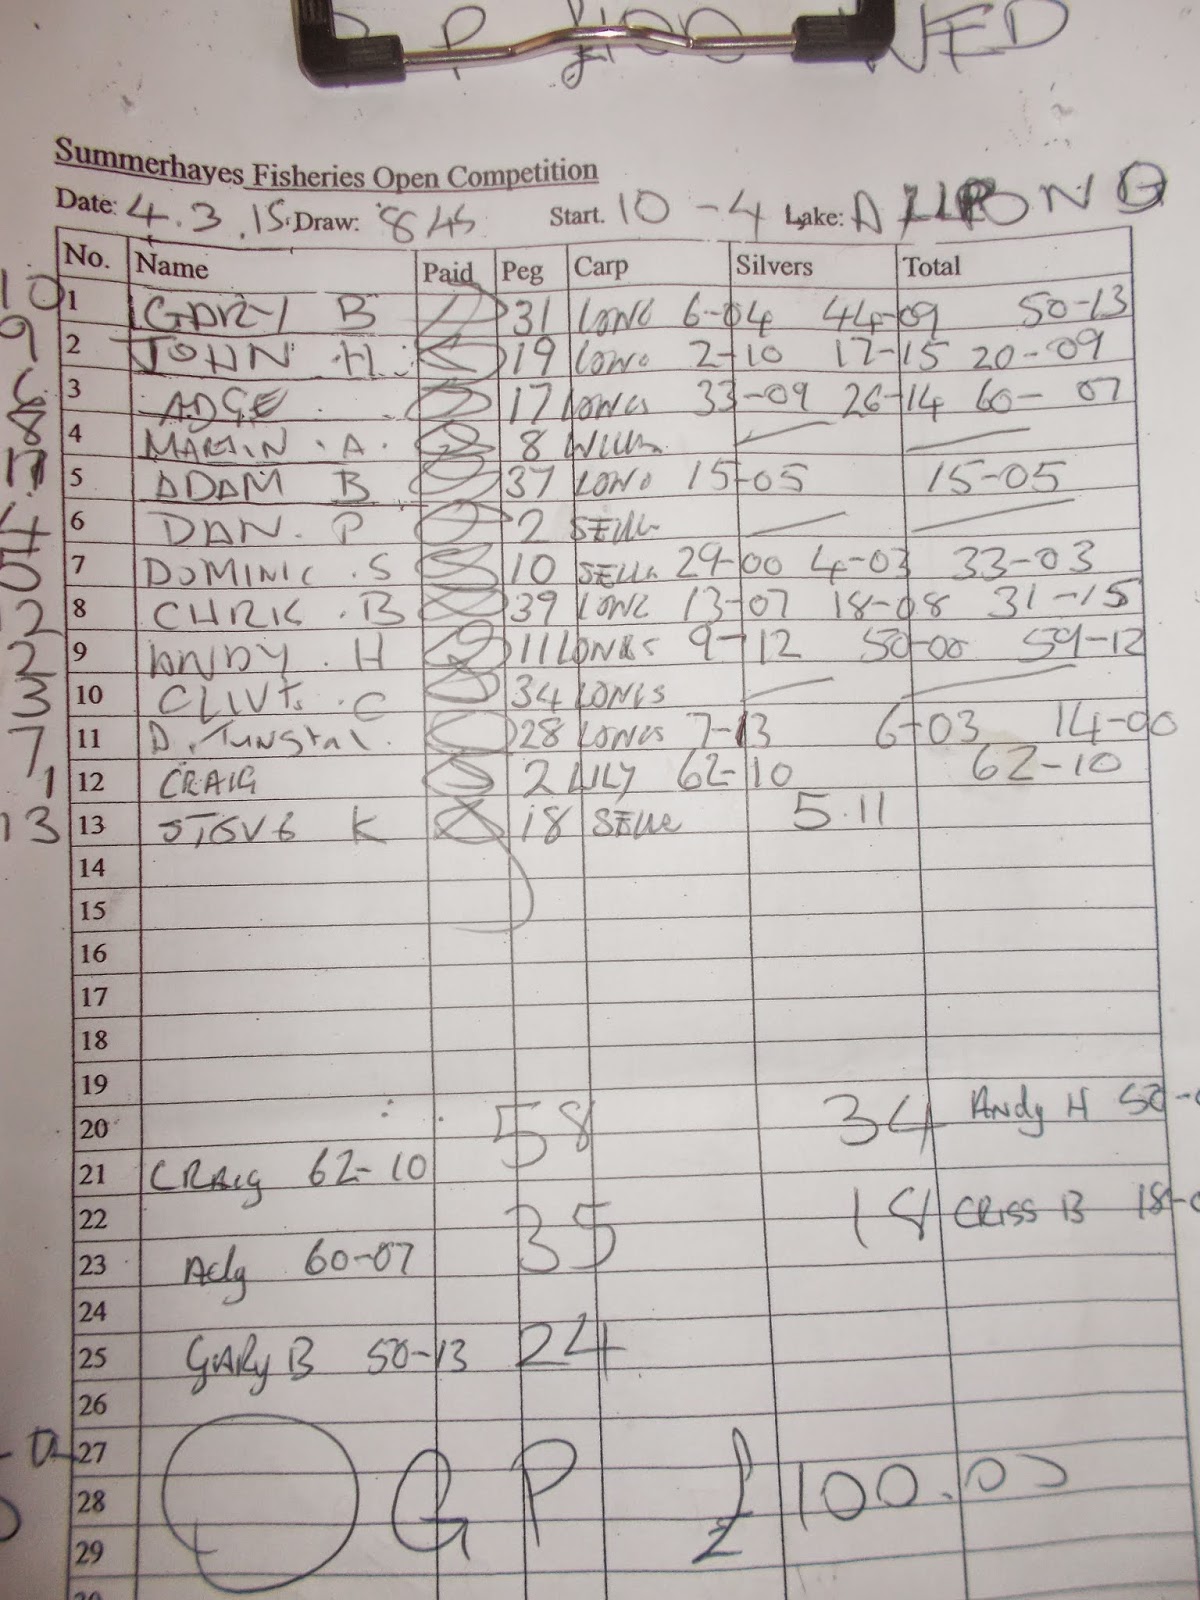 £100 NED
Summerhayes Fisheries Open Competition
Date: 4.3.15. Draw: 845 Start. 10-4 Lake: ALL
No. Name Paid Peg Carp Silvers Total
10 1 GARY B 31 LONG 6-04 44-09 50-13
9 2 JOHN H 19 LONG 2-10 17-15 20-09
6 3 ADGE 17 LONGS 33-09 26-14 60-07
8 4 MARTIN . A. 8
5 ADAM B 37 LONG 15-05 15-05
4 6 DAN. P 2
7 DOMINIC . S 10 29-00 4-03 33-03
12 8 CHRIS . B 39 LONG 13-07 18-08 31-15
2 9 ANDY . H 11 LONGS 9-12 50-00 59-12
3 10 CLIVE. C 34 LONGS
7 11 D. Tunstal. 28 LONGS 7-13 6-03 14-00
1 12 CRAIG 2 LILY 62-10 62-10
13 13 STEVE K 18 5.11
14
15
16
17
18
19
20 58 34 Andy H 50-0
21 CRAIg 62-10
22 35 18 CRISS B 18-0
23 Adg 60-07
24
25 GARy B 50-13 24
26
27
28 GP £100.00
29